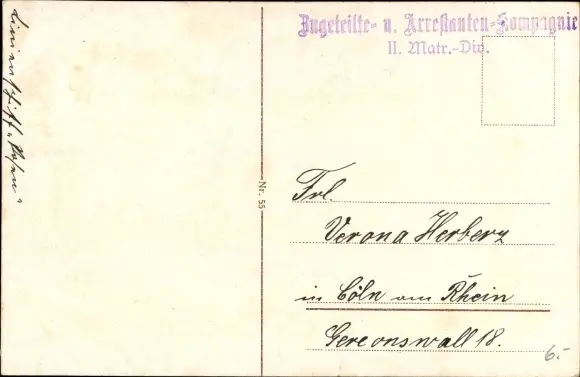 Zugeteilte- u. Arrestanten-Kompagnie
II. Matr.-Div.
Linienschiff
Nr. 55
Frl.
Verona Herberz
in Cöln am Rhein
Gereonswall 18.
6.-